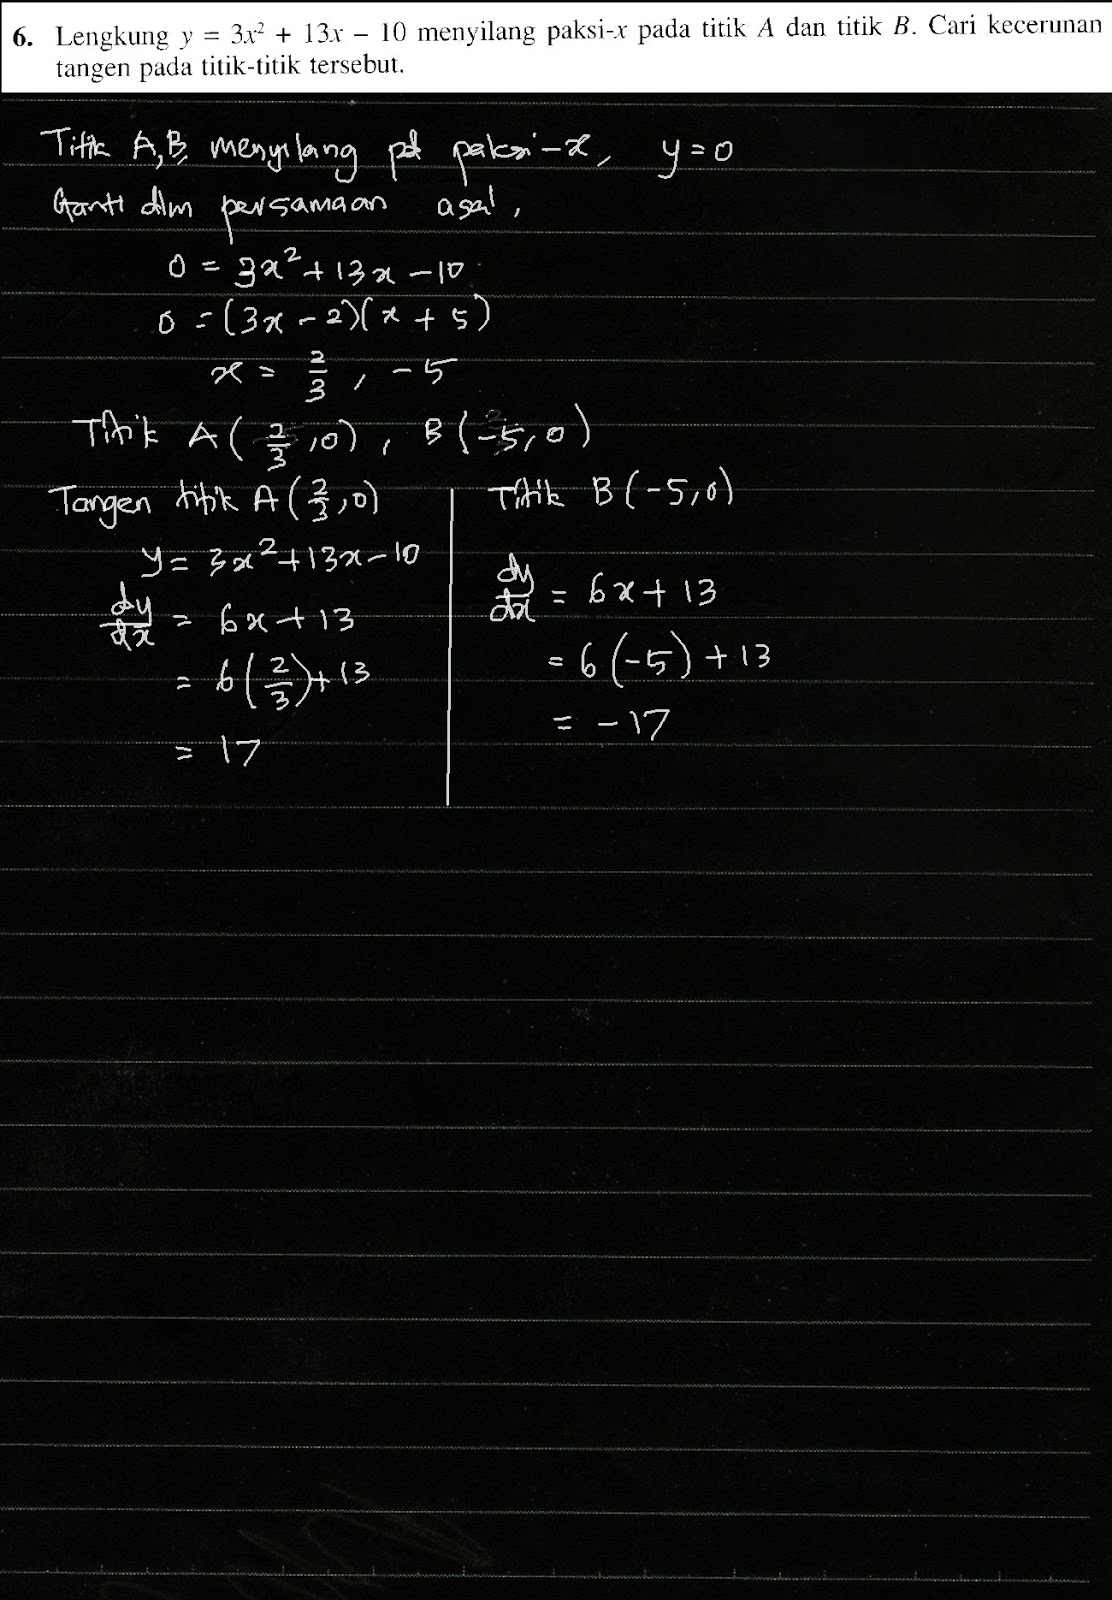 6. Lengkung y = 3x² + 13x – 10 menyilang paksi-x pada titik A dan titik B. Cari kecerunan
tangen pada titik-titik tersebut.
Titik A,B menyilang pd paksi-x, y=0
Ganti dlm persamaan asal,
0 = 3x² + 13x – 10
0 = (3x – 2)(x + 5)
x = 2/3, –5
Titik A(2/3, 0), B(–5, 0)
Tangen titik A(2/3, 0)
y = 3x² + 13x – 10
dy/dx = 6x + 13
= 6(2/3) + 13
= 17
Titik B(–5, 0)
dy/dx = 6x + 13
= 6(–5) + 13
= –17